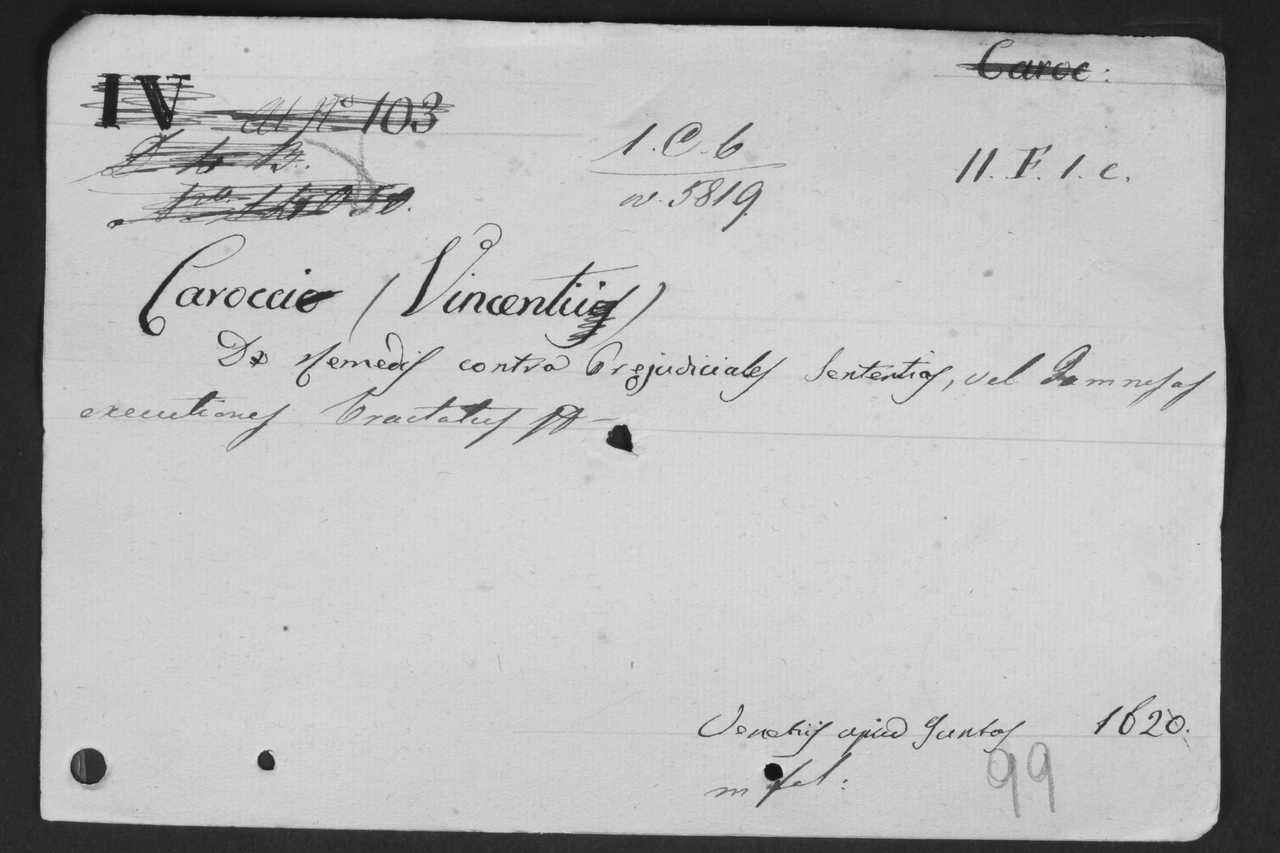 Caroc:
IV ad No 103
1. C. 6
n. 5819
11. F. 1. c.
Caroccio (Vincentius)
De Remedijs contra Prejudiciales Sententias, vel Damnosas
executiones Tractatus
Venetijs apud Juntas 1620.
in fol:
99